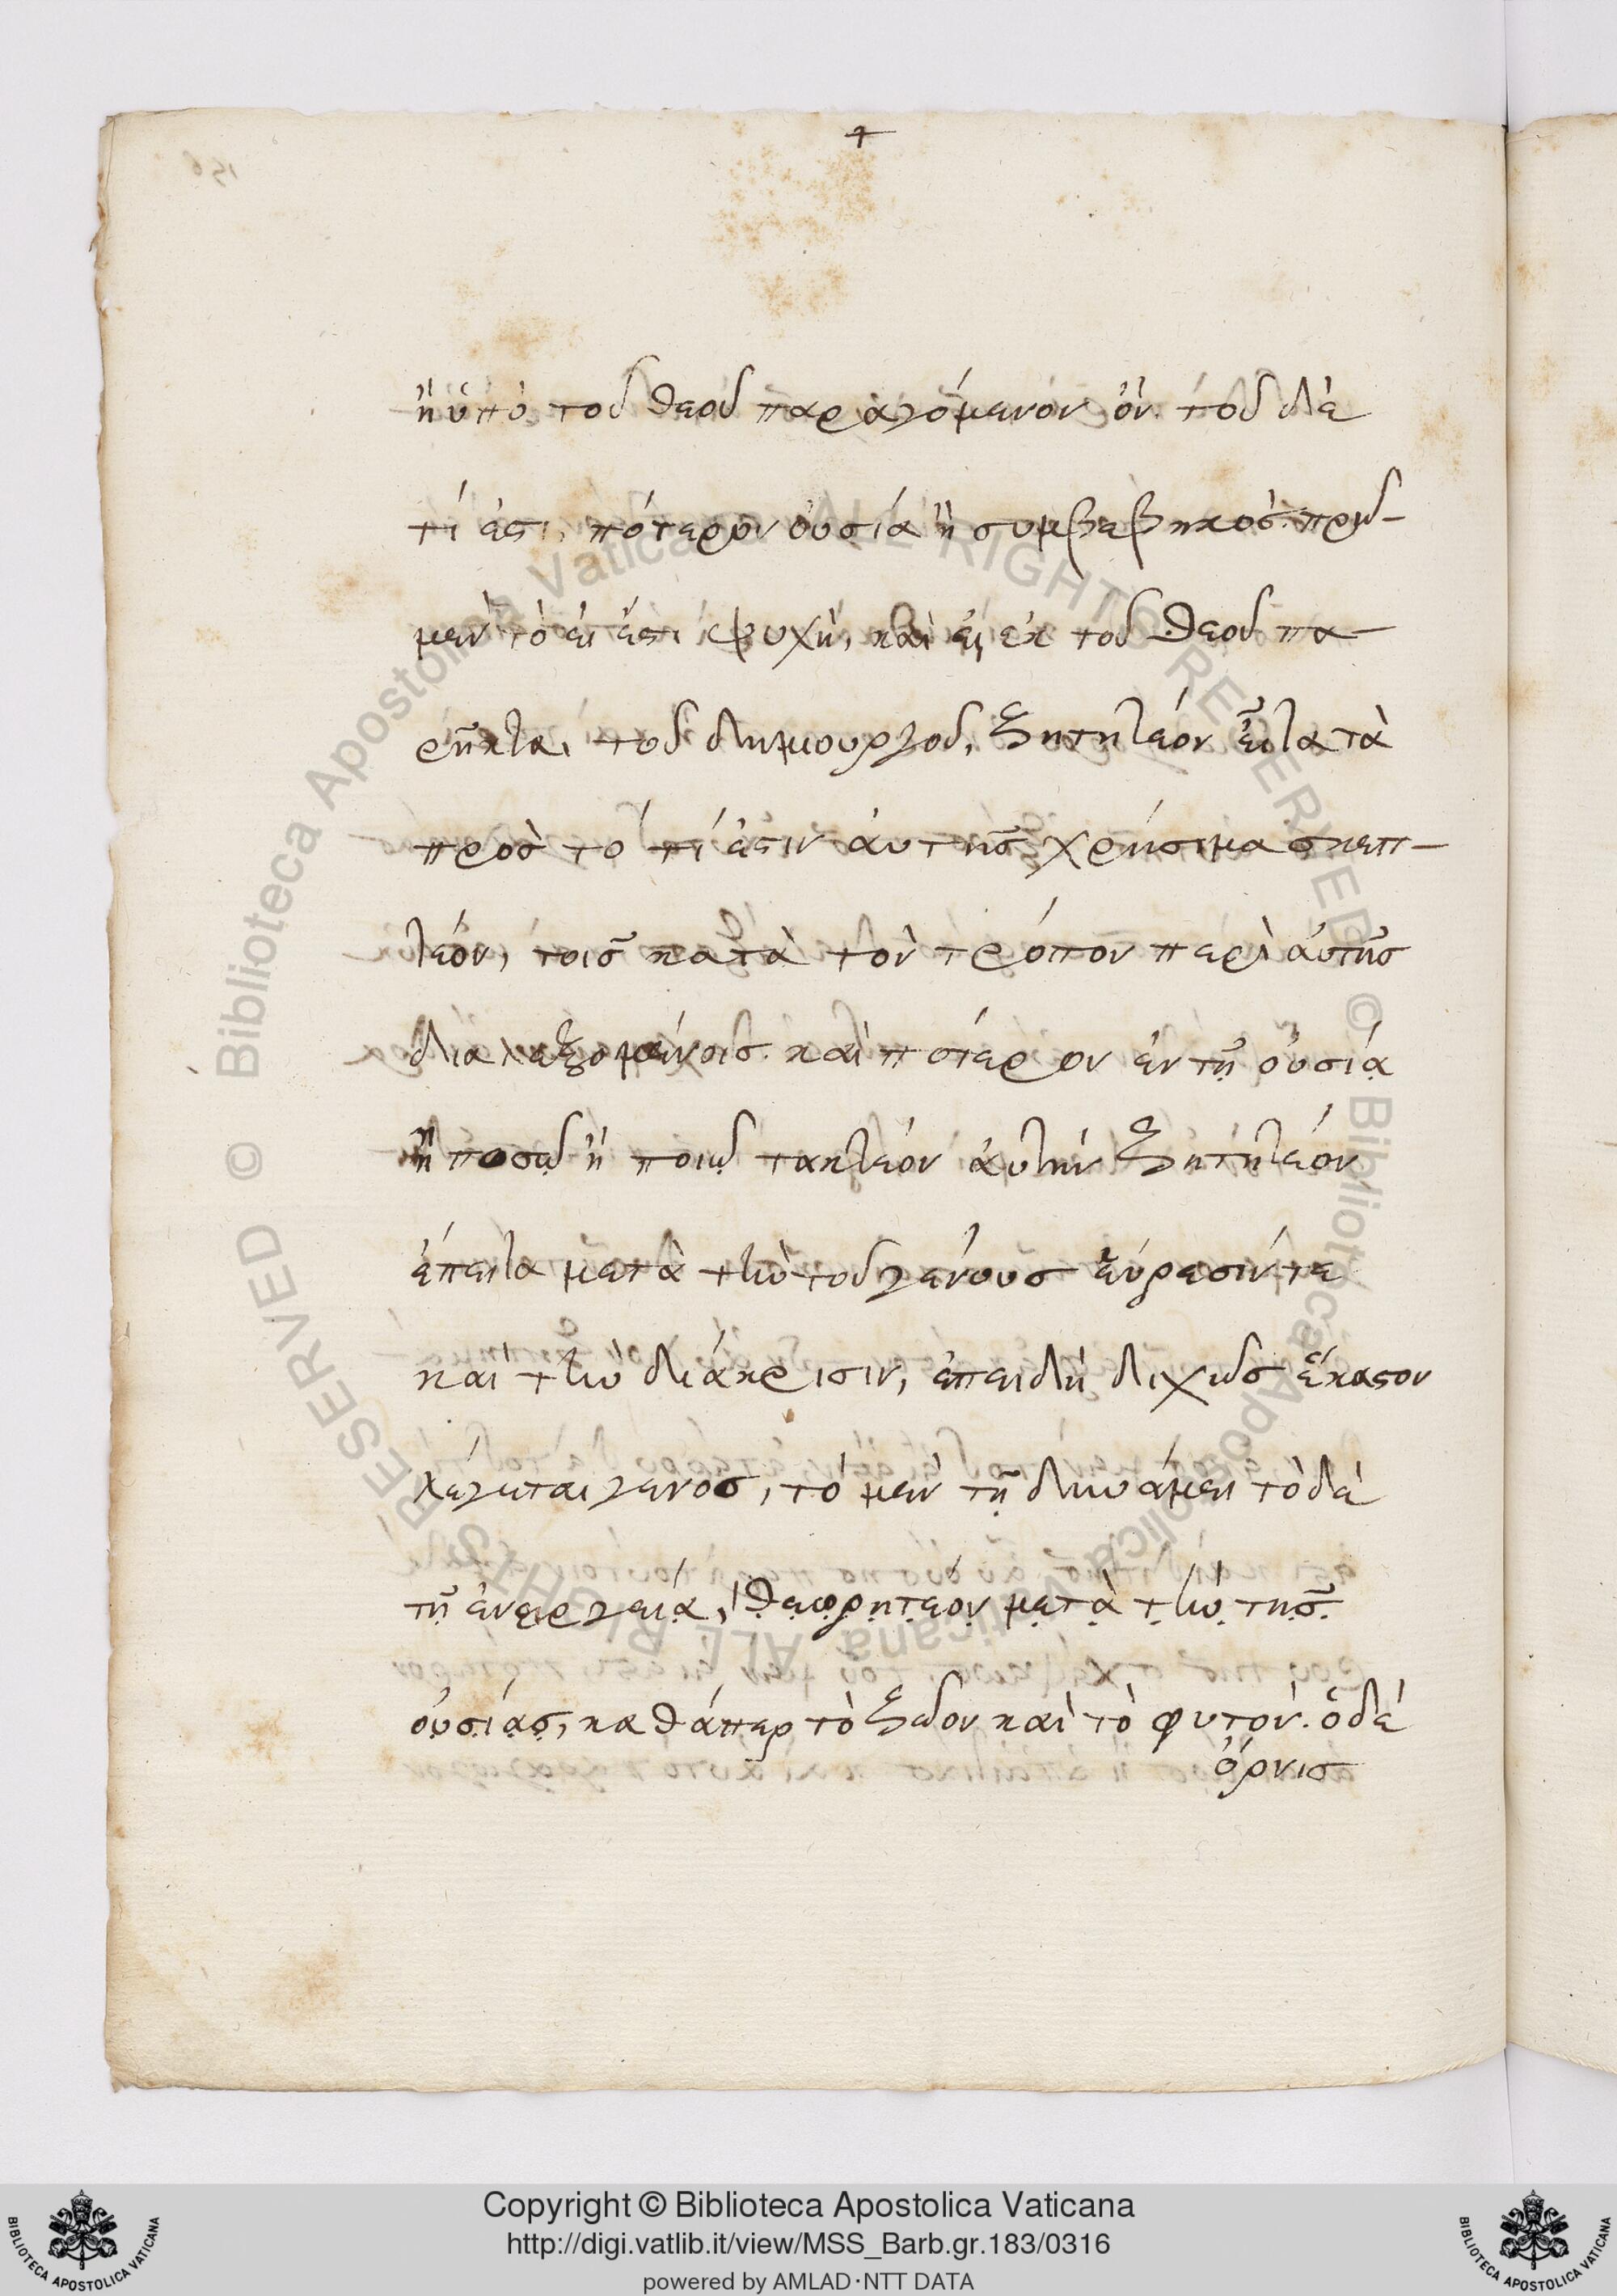 +
ἢ ὑπὸ τοῦ θεοῦ παραγόμενον ὄν. τοῦ δὲ
τί ἐστι, πότερον οὐσία ἢ συμβεβηκός. πρῶ-
μεν τὸ εἰ ἔστι ψυχὴ, καὶ εἰ ἐκ τοῦ θεοῦ πα-
ρῆκται τοῦ δημιουργοῦ, ζητητέον εἶτα τὰ
πρὸς τὸ τί ἐστιν αὐτῆς χρήσιμα σκεπ-
τέον, τοῖς κατὰ τὸν τρόπον περὶ αὐτῆς
διαλεξομένοις. καὶ πότερον ἐν τῇ οὐσίᾳ
ἢ ποσῷ ἢ ποιῷ τακτέον αὐτὴν ζητητέον
ἔπειτα μετὰ τὴν τοῦ γένους εὕρεσίν τε
καὶ τὴν διάκρισιν, ἐπειδὴ διχῶς ἕκαστον
λέγεται γένος, τὸ μὲν τῇ δυνάμει τὸ δὲ
τῇ ἐνεργείᾳ, θεωρητέον μετὰ τὴν τῆς
οὐσίας, καθάπερ τὸ ζῶον καὶ τὸ φυτόν. ὁ δὲ
ὄρνις
Biblioteca Apostolica Vaticana ALL RIGHTS RESERVED © Biblioteca Apostolica Vaticana ALL RIGHTS RESERVED ©
Copyright © Biblioteca Apostolica Vaticana
http://digi.vatlib.it/view/MSS_Barb.gr.183/0316
powered by AMLAD·NTT DATA
BIBLIOTECA APOSTOLICA VATICANA
BIBLIOTECA APOSTOLICA VATICANA